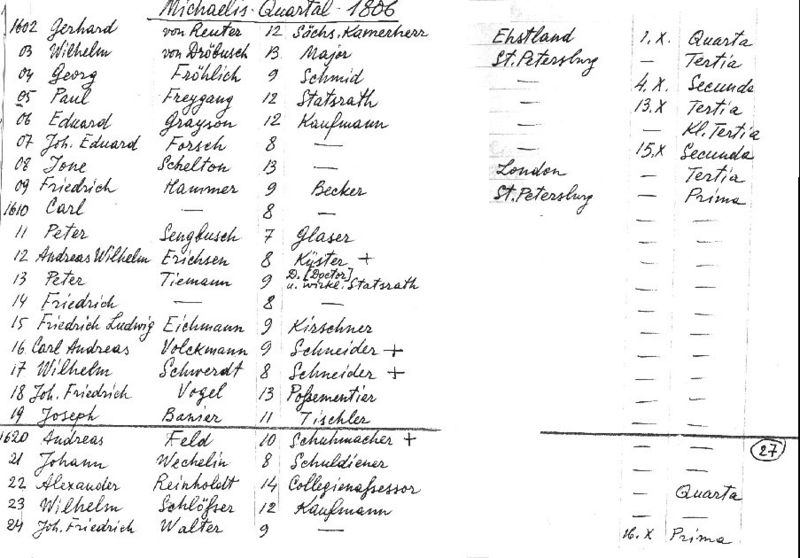 Michaelis-Quartal-1806
1602 Gerhard von Reuter 12 Söchs. Kamerherr Ehstland 1.X. Quarta
03 Wilhelm von Dröbusch 13 Major St.Petersburg — Tertia
04 Georg Fröhlich 9 Schmid — 4.X. Secunda
05 Paul Freygang 12 Statsrath — 13.X Tertia
06 Eduard Grayson 12 Kaufmann — — Kl.Tertia
07 Joh. Eduard Forsch 8 — — 15.X Secunda
08 Jone Schelton 13 — London — Tertia
09 Friedrich Hammer 9 Becker St.Petersburg — Prima
1610 Carl — 8 — — —
11 Peter Sengbusch 7 Glaser — —
12 Andreas Wilhelm Erichsen 8 Küster + — —
13 Peter Tiemann 9 D. [Doctor] u. wirkl. Statsrath — —
14 Friedrich — 8 — — —
15 Friedrich Ludwig Eichmann 9 Kirschner — —
16 Carl Andreas Volckmann 9 Schneider + — —
17 Wilhelm Schwerdt 8 Schneider + — —
18 Joh. Friedrich Vogel 13 Poßementier — —
19 Joseph Banier 11 Tischler — —
1620 Andreas Feld 10 Schuhmacher + — — 27
21 Johann Wechelin 8 Schuldiener — —
22 Alexander Reinholdt 14 Collegienaßessor — Quarta
23 Wilhelm Schlößer 12 Kaufmann — —
24 Joh. Friedrich Walter 9 — 16.X Prima